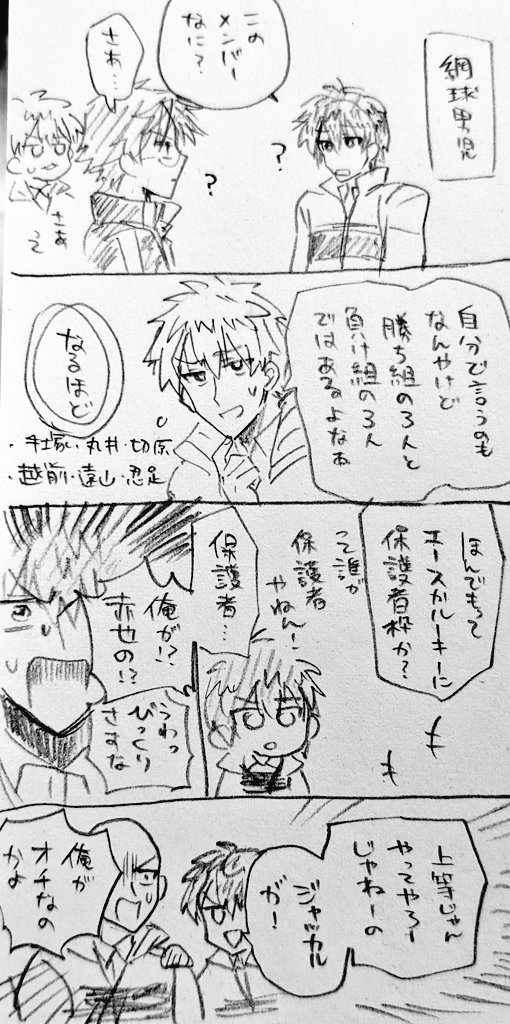 網球男児
この
メンバー
なに?
さあ…
?
?
さあ
って
自分で言うのも
なんやけど
勝ち組の3人と
負け組の3人
ではあるよなぁ
なるほど
・手塚・丸井・切原
・越前・遠山・忍足
ほんでもって
エースかルーキーに
保護者枠か?
って誰が
保護者
やねん!
保護者…
俺が!?
赤也の!?
うわっ
びっくり
さすな
上等じゃん
やってやろー
じゃねーの
ジャッカル
が!
俺が
オチなの
かよ